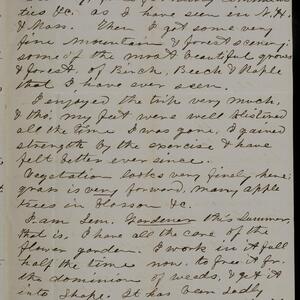 ties &c. as I have seen in N.H.
& Mass. Then I got some very
fine mountain & forest scenery;
some of the most beautiful groves
& forests, of Birch, Beech & Maple
that I have ever seen.
I enjoyed the trip very much,
& tho' my feet were well blistered
all the time I was gone, I gained
strength by the exercise & have
felt better ever since.
Vegetation looks very finely here;
grass is very forward, many apple
trees in blossom &c.
I am Sem. Gardener this Summer,
that is, I have all the care of the
flower garden. I work in it full
half the time now, to free it fr.
the dominion of weeds, & get it
into shape. It has been sadly